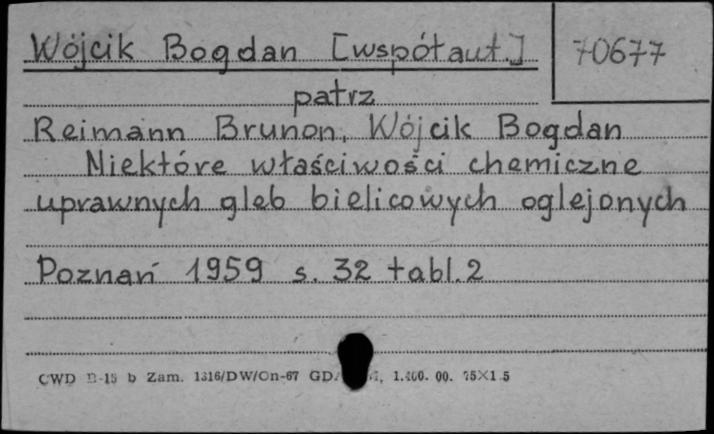 Wójcik Bogdan [współaut.] 70677
patrz
Reimann Brunon, Wójcik Bogdan
Niektóre właściwości chemiczne
uprawnych gleb bielicowych oglejonych
Poznań 1959 s. 32 tabl. 2
CWD B-15 b Zam. 1316/DW/On-67 1.400. 00.